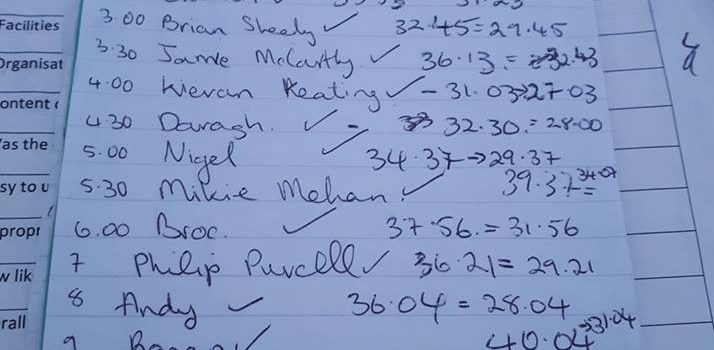 Facilities
Organisat
ontent
as the
sy to u
propr
w lik
rall
3.00 Brian Sheely ✓ 32.45=29.45
3.30 Jamie McCarthy ✓ 36.13.= 32.43
4.00 Kieran Keating ✓ - 31.03→27.03
4.30 Daragh. ✓ - 32.30.= 28.00
5.00 Nigel ✓ 34.37→29.37
5.30 Mikie Mehan ✓ 39.37= 34.07
6.00 Broc. ✓ 37.56.= 31.56
7 Philip Purcell ✓ 36.21= 29.21
8 Andy ✓ 36.04 = 28.04
9 ✓ 40.04→31.04